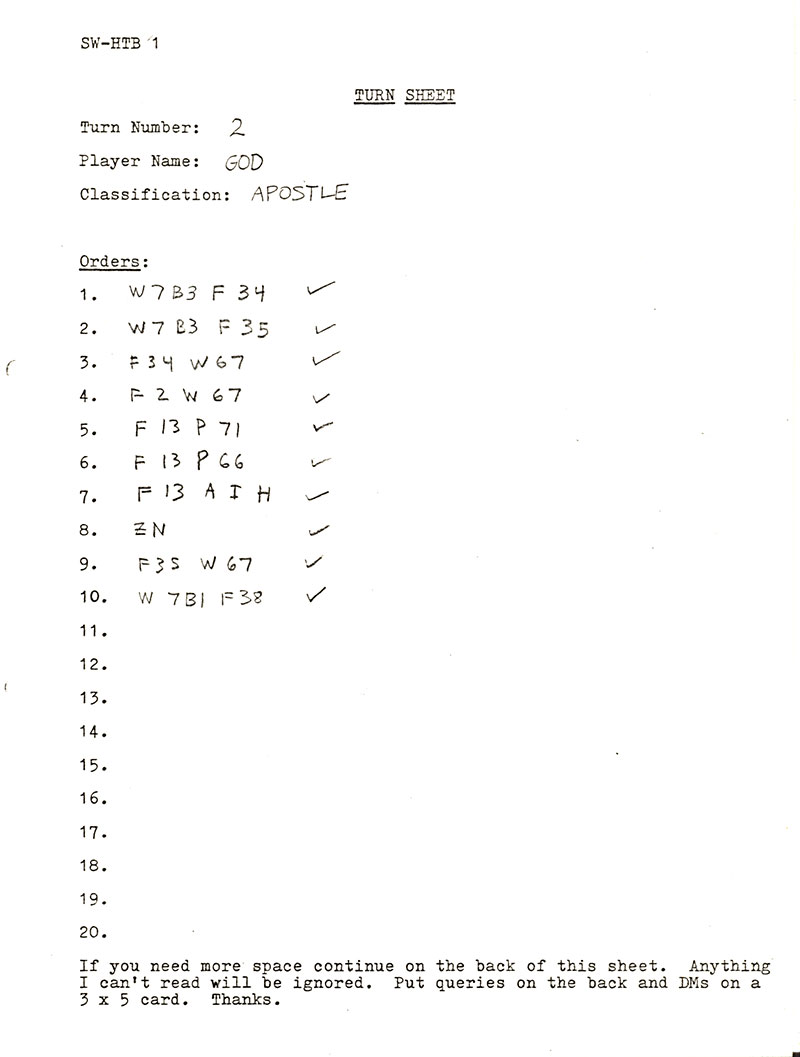 SW-HTB 1
TURN SHEET
Turn Number: 2
Player Name: GOD
Classification: APOSTLE
Orders:
1. W7B3 F 34 ✓
2. W7 B3 F 35 ✓
3. F34 W67 ✓
4. F 2 W 67 ✓
5. F 13 P 71 ✓
6. F 13 P 66 ✓
7. F 13 A I H ✓
8. ZN ✓
9. F35 W 67 ✓
10. W 7B1 F38 ✓
11.
12.
13.
14.
15.
16.
17.
18.
19.
20.
If you need more space continue on the back of this sheet. Anything
I can't read will be ignored. Put queries on the back and DMs on a
3 x 5 card. Thanks.